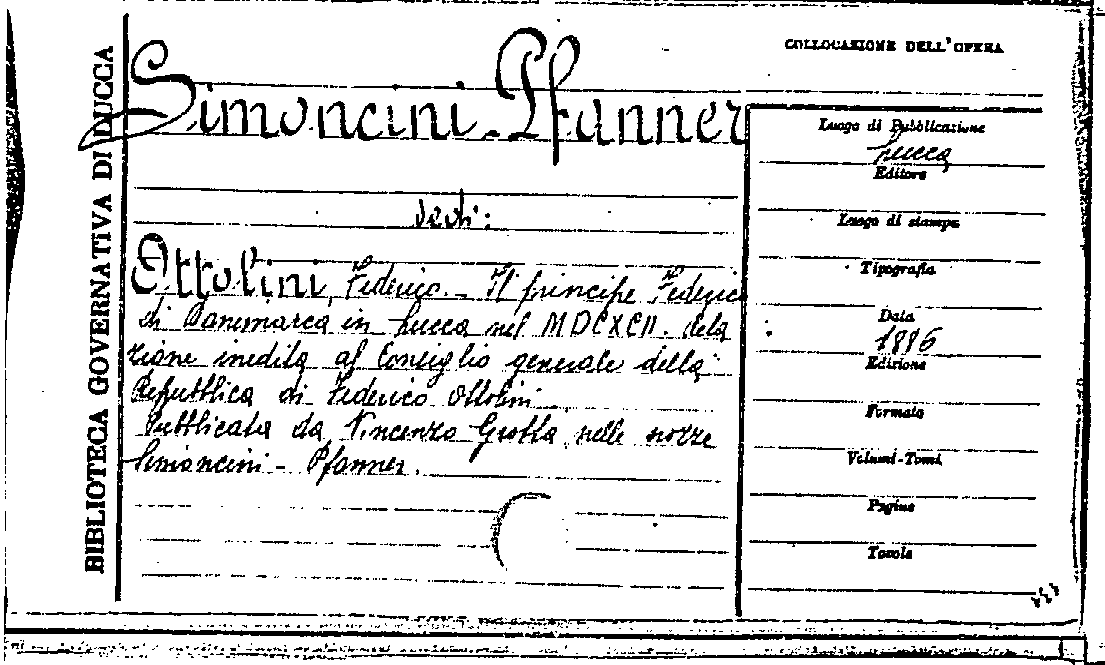 BIBLIOTECA GOVERNATIVA DI LUCCA
COLLOCAZIONE DELL'OPERA
Simoncini-Pfanner
vedi:
Ottolini, Federico. - Il principe Federico
di Danimarca in Lucca nel MDCXCII. Rela
zione inedita al Consiglio generale della
Repubblica di Federico Ottolini
Pubblicata da Vincenzo Grotta nelle nozze
Simoncini - Pfanner.
Luogo di Pubblicazione
Lucca
Editore
Luogo di stampa
Tipografia
Data
1886
Edizione
Formato
Volumi-Tomi
Pagine
Tavole